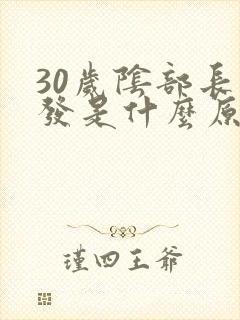 30歲陰部長
發是什麼原
瑾四王爺